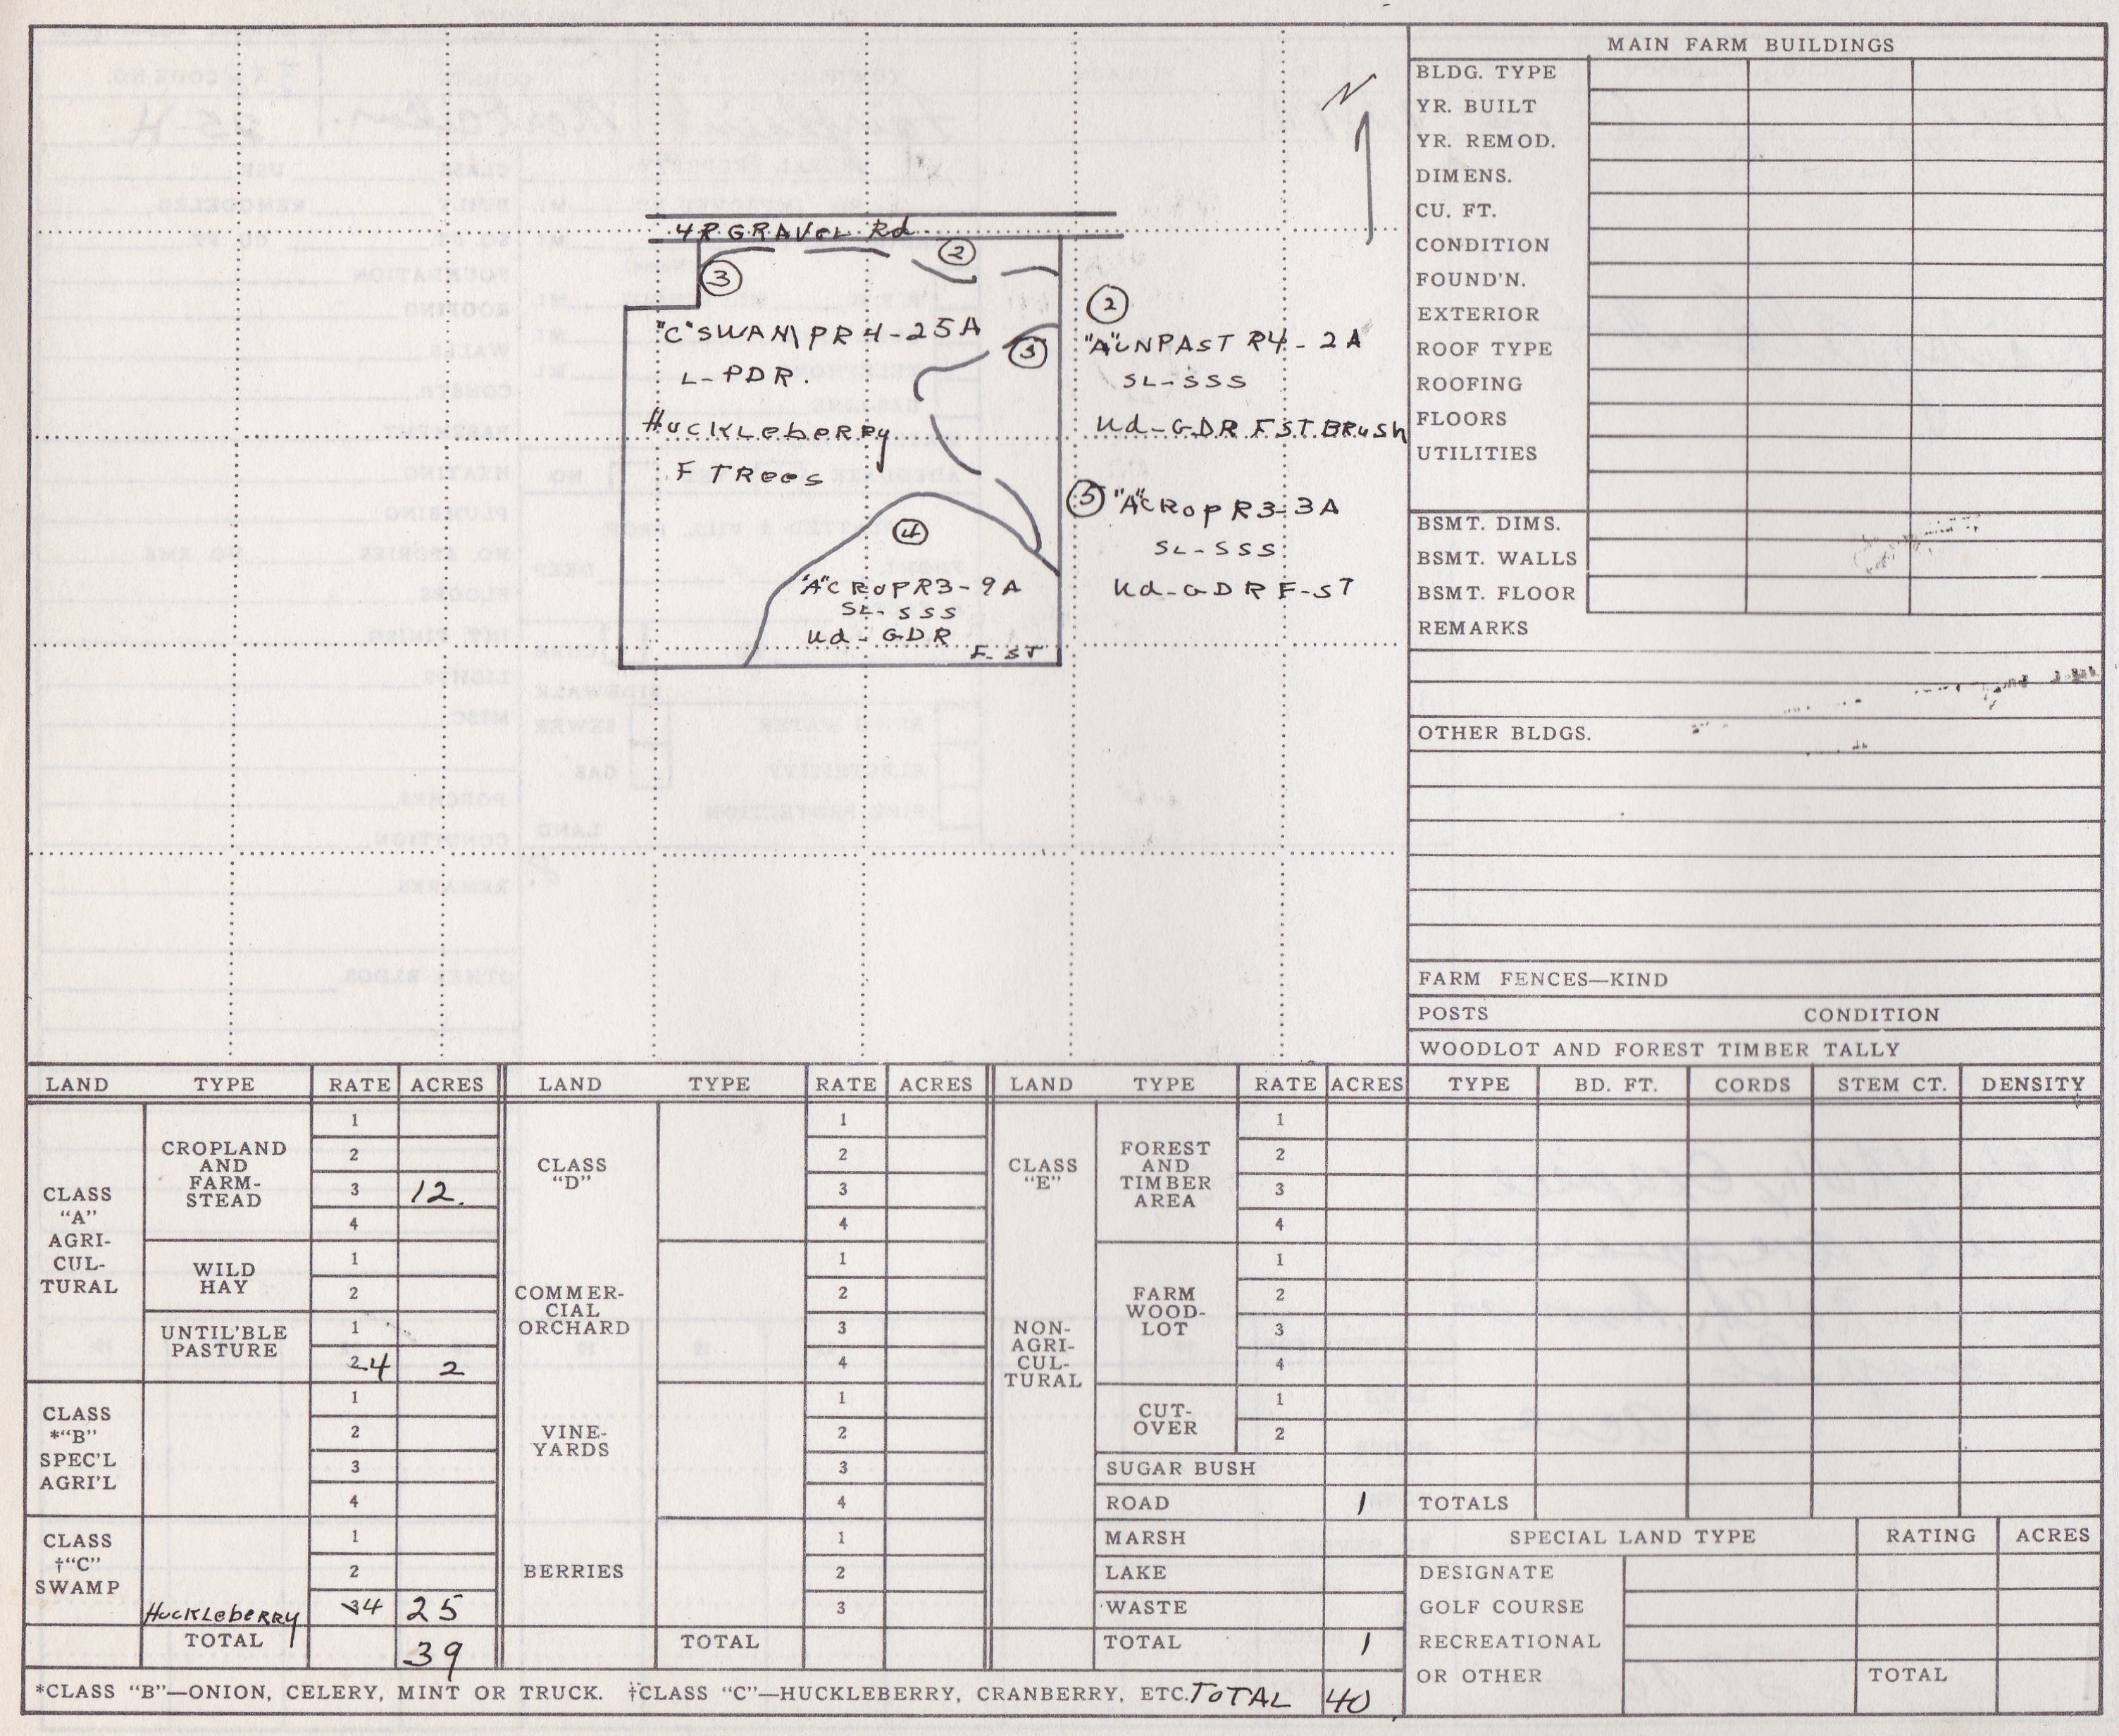 N
4R GRAVEL Rd.
2
3
2
"C" SWAMP R4-25A
3
"A" UNPAST R4-2A
L-PDR.
SL-SSS
HuckLebeRRy
Ud-GDR F.ST.BRush
F TRees
5 "A" CRop R3-3A
4
SL-SSS
"A" CRop R3-9A
Ud-GDR F-ST
SL-SSS
Ud-GDR
F-ST
MAIN FARM BUILDINGS
BLDG. TYPE
YR. BUILT
YR. REMOD.
DIMENS.
CU. FT.
CONDITION
FOUND'N.
EXTERIOR
ROOF TYPE
ROOFING
FLOORS
UTILITIES
BSMT. DIMS.
BSMT. WALLS
BSMT. FLOOR
REMARKS
OTHER BLDGS.
FARM FENCES—KIND
POSTS CONDITION
WOODLOT AND FOREST TIMBER TALLY
TYPE BD. FT. CORDS STEM CT. DENSITY
TOTALS
LAND TYPE RATE ACRES
CLASS
"A"
AGRI-
CUL-
TURAL
CROPLAND
AND
FARM-
STEAD
1
2
3 12.
4
WILD
HAY
1
2
UNTIL'BLE
PASTURE
1
2 4 2
CLASS
*"B"
SPEC'L
AGRI'L
1
2
3
4
CLASS
†"C"
SWAMP
1
2
HuckLebeRRy 3 4 25
TOTAL 39
LAND TYPE RATE ACRES
CLASS
"D"
1
2
3
4
COMMER-
CIAL
ORCHARD
1
2
3
4
VINE-
YARDS
1
2
3
4
BERRIES
1
2
3
TOTAL
LAND TYPE RATE ACRES
CLASS
"E"
NON-
AGRI-
CUL-
TURAL
FOREST
AND
TIMBER
AREA
1
2
3
4
FARM
WOOD-
LOT
1
2
3
4
CUT-
OVER
1
2
SUGAR BUSH
ROAD 1
MARSH
LAKE
WASTE
TOTAL 1
SPECIAL LAND TYPE RATING ACRES
DESIGNATE
GOLF COURSE
RECREATIONAL
OR OTHER
TOTAL
*CLASS "B"—ONION, CELERY, MINT OR TRUCK. †CLASS "C"—HUCKLEBERRY, CRANBERRY, ETC. TOTAL 40